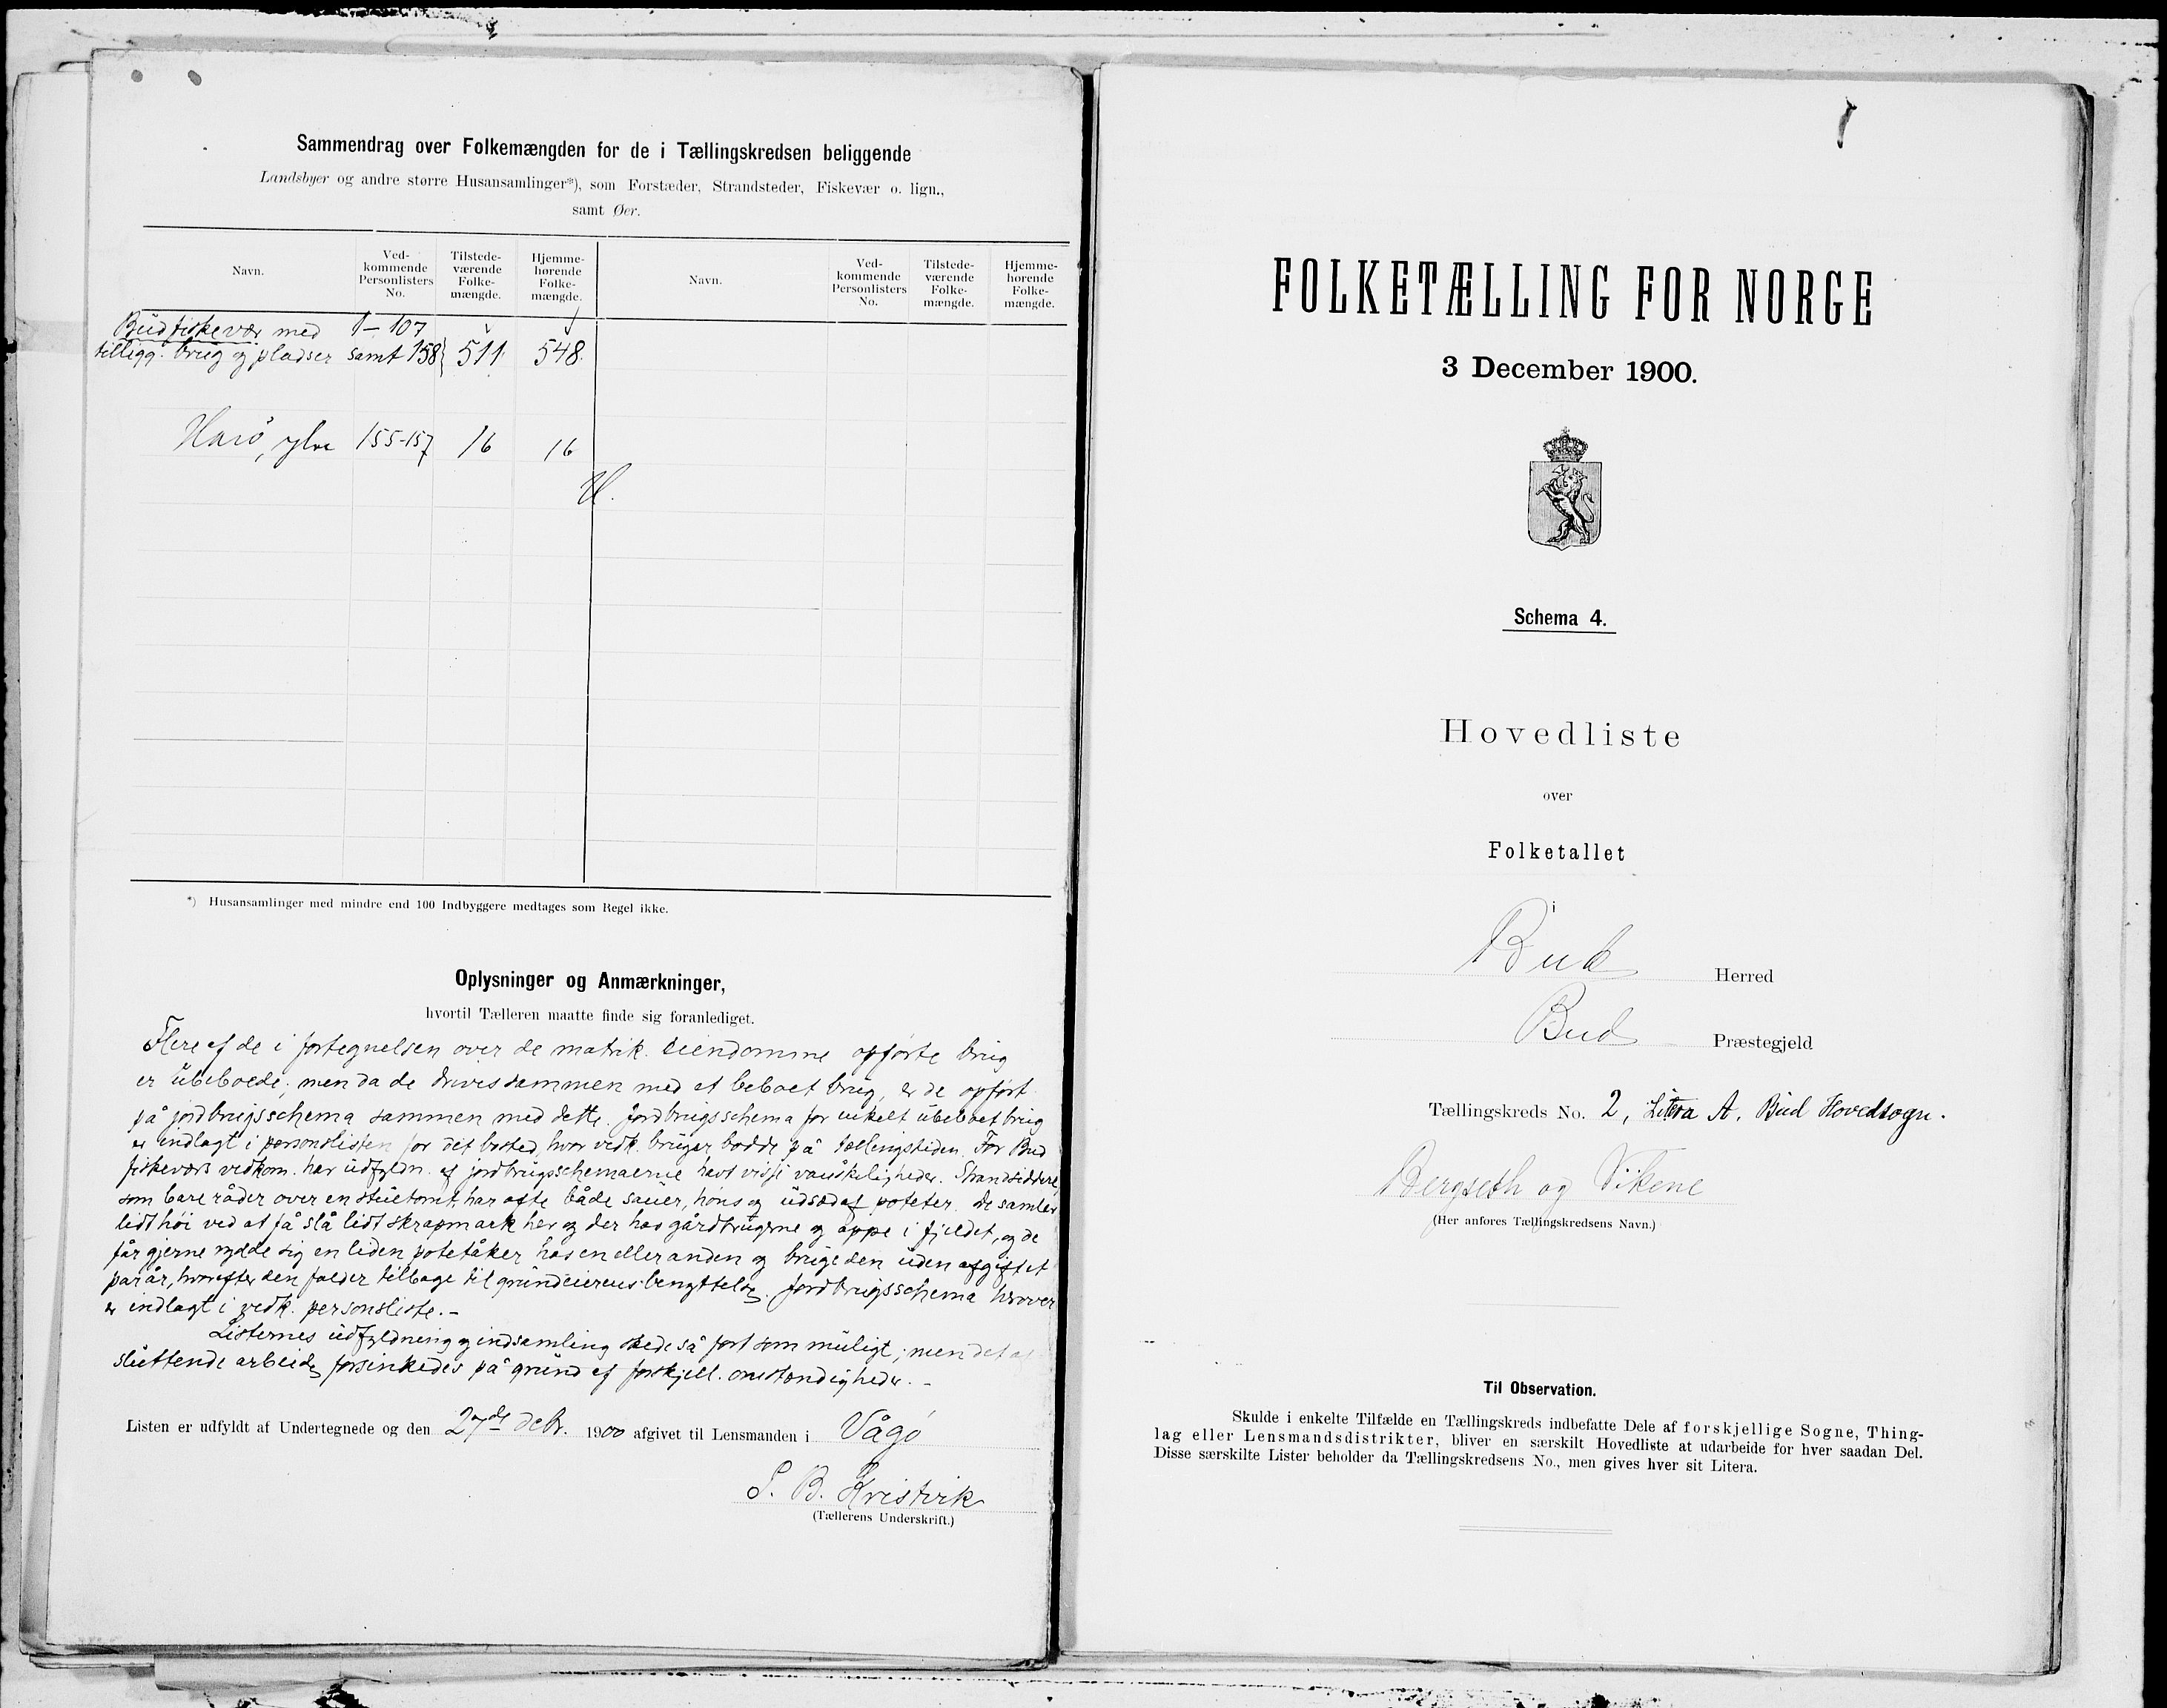 Sammendrag over Folkemængden for de i Tællingskredsen beliggende
Landsbyer og andre større Husansamlinger*), som Forstæder, Strandsteder, Fiskevær o. lign.,
samt Øer.
Navn. Ved-kommende Personlisters No. Tilstede-værende Folke-mængde. Hjemme-hørende Folke-mængde. Navn. Ved-kommende Personlisters No. Tilstede-værende Folke-mængde. Hjemme-hørende Folke-mængde.
Bud fiskevær med 1–107
tilligg. brug og pladser samt 158 511 548
Harö, 155-157 16 16
*) Husansamlinger med mindre end 100 Indbyggere medtages som Regel ikke.
Oplysninger og Anmærkninger,
hvortil Tælleren maatte finde sig foranlediget.
Flere af de i fortegnelsen over de matrik. eiendomme opførte brug
er ubeboede; men da de drives sammen med et beboet brug, er de opført
på jordbrugsschema sammen med dette. Jordbrugsschema for enkelt ubeboet brug
er indlagt i personslisten for det bosted, hvor vedk. bruger bodde på tællingstiden. For Bud
fiskeværs vedkom. har udfyldn. af jordbrugsschemaerne havt visse vanskeligheder. Strandsiddere,
som bare råder over en stuetomt, har ofte både sauer, høns og udsæd af poteter. De samler
lidt höi ved at få slå lidt skrapmark her og der hos gårdbrugerne og oppe i fjeldet, og de
får gjerne rydde sig en liden potetåker hos en eller anden og bruge den uden afgift et
par år, hvorefter den falder tilbage til grundeierens benyttelse. Jordbrugsschema herover
er indlagt i vedk. personsliste. –
Listernes udfyldning og indsamling skede så fort som muligt; men det
sluttende arbeide forsinkedes på grund af forskjell. omstændigheder. –
Listen er udfyldt af Undertegnede og den 27de debr. 1900 afgivet til Lensmanden i Vågø
S. B. Kristvik
(Tællerens Underskrift.)
FOLKETÆLLING FOR NORGE
3 December 1900.
Schema 4.
Hovedliste
over
Folketallet
i
Bud Herred
Bud Præstegjeld
Tællingskreds No. 2, Litera A, Bud Hovedsogn.
Bergseth og Vikene
(Her anføres Tællingskredsens Navn.)
Til Observation.
Skulde i enkelte Tilfælde en Tællingskreds indbefatte Dele af forskjellige Sogne, Thing-
lag eller Lensmandsdistrikter, bliver en særskilt Hovedliste at udarbeide for hver saadan Del.
Disse særskilte Lister beholder da Tællingskredsens No., men gives hver sit Litera.